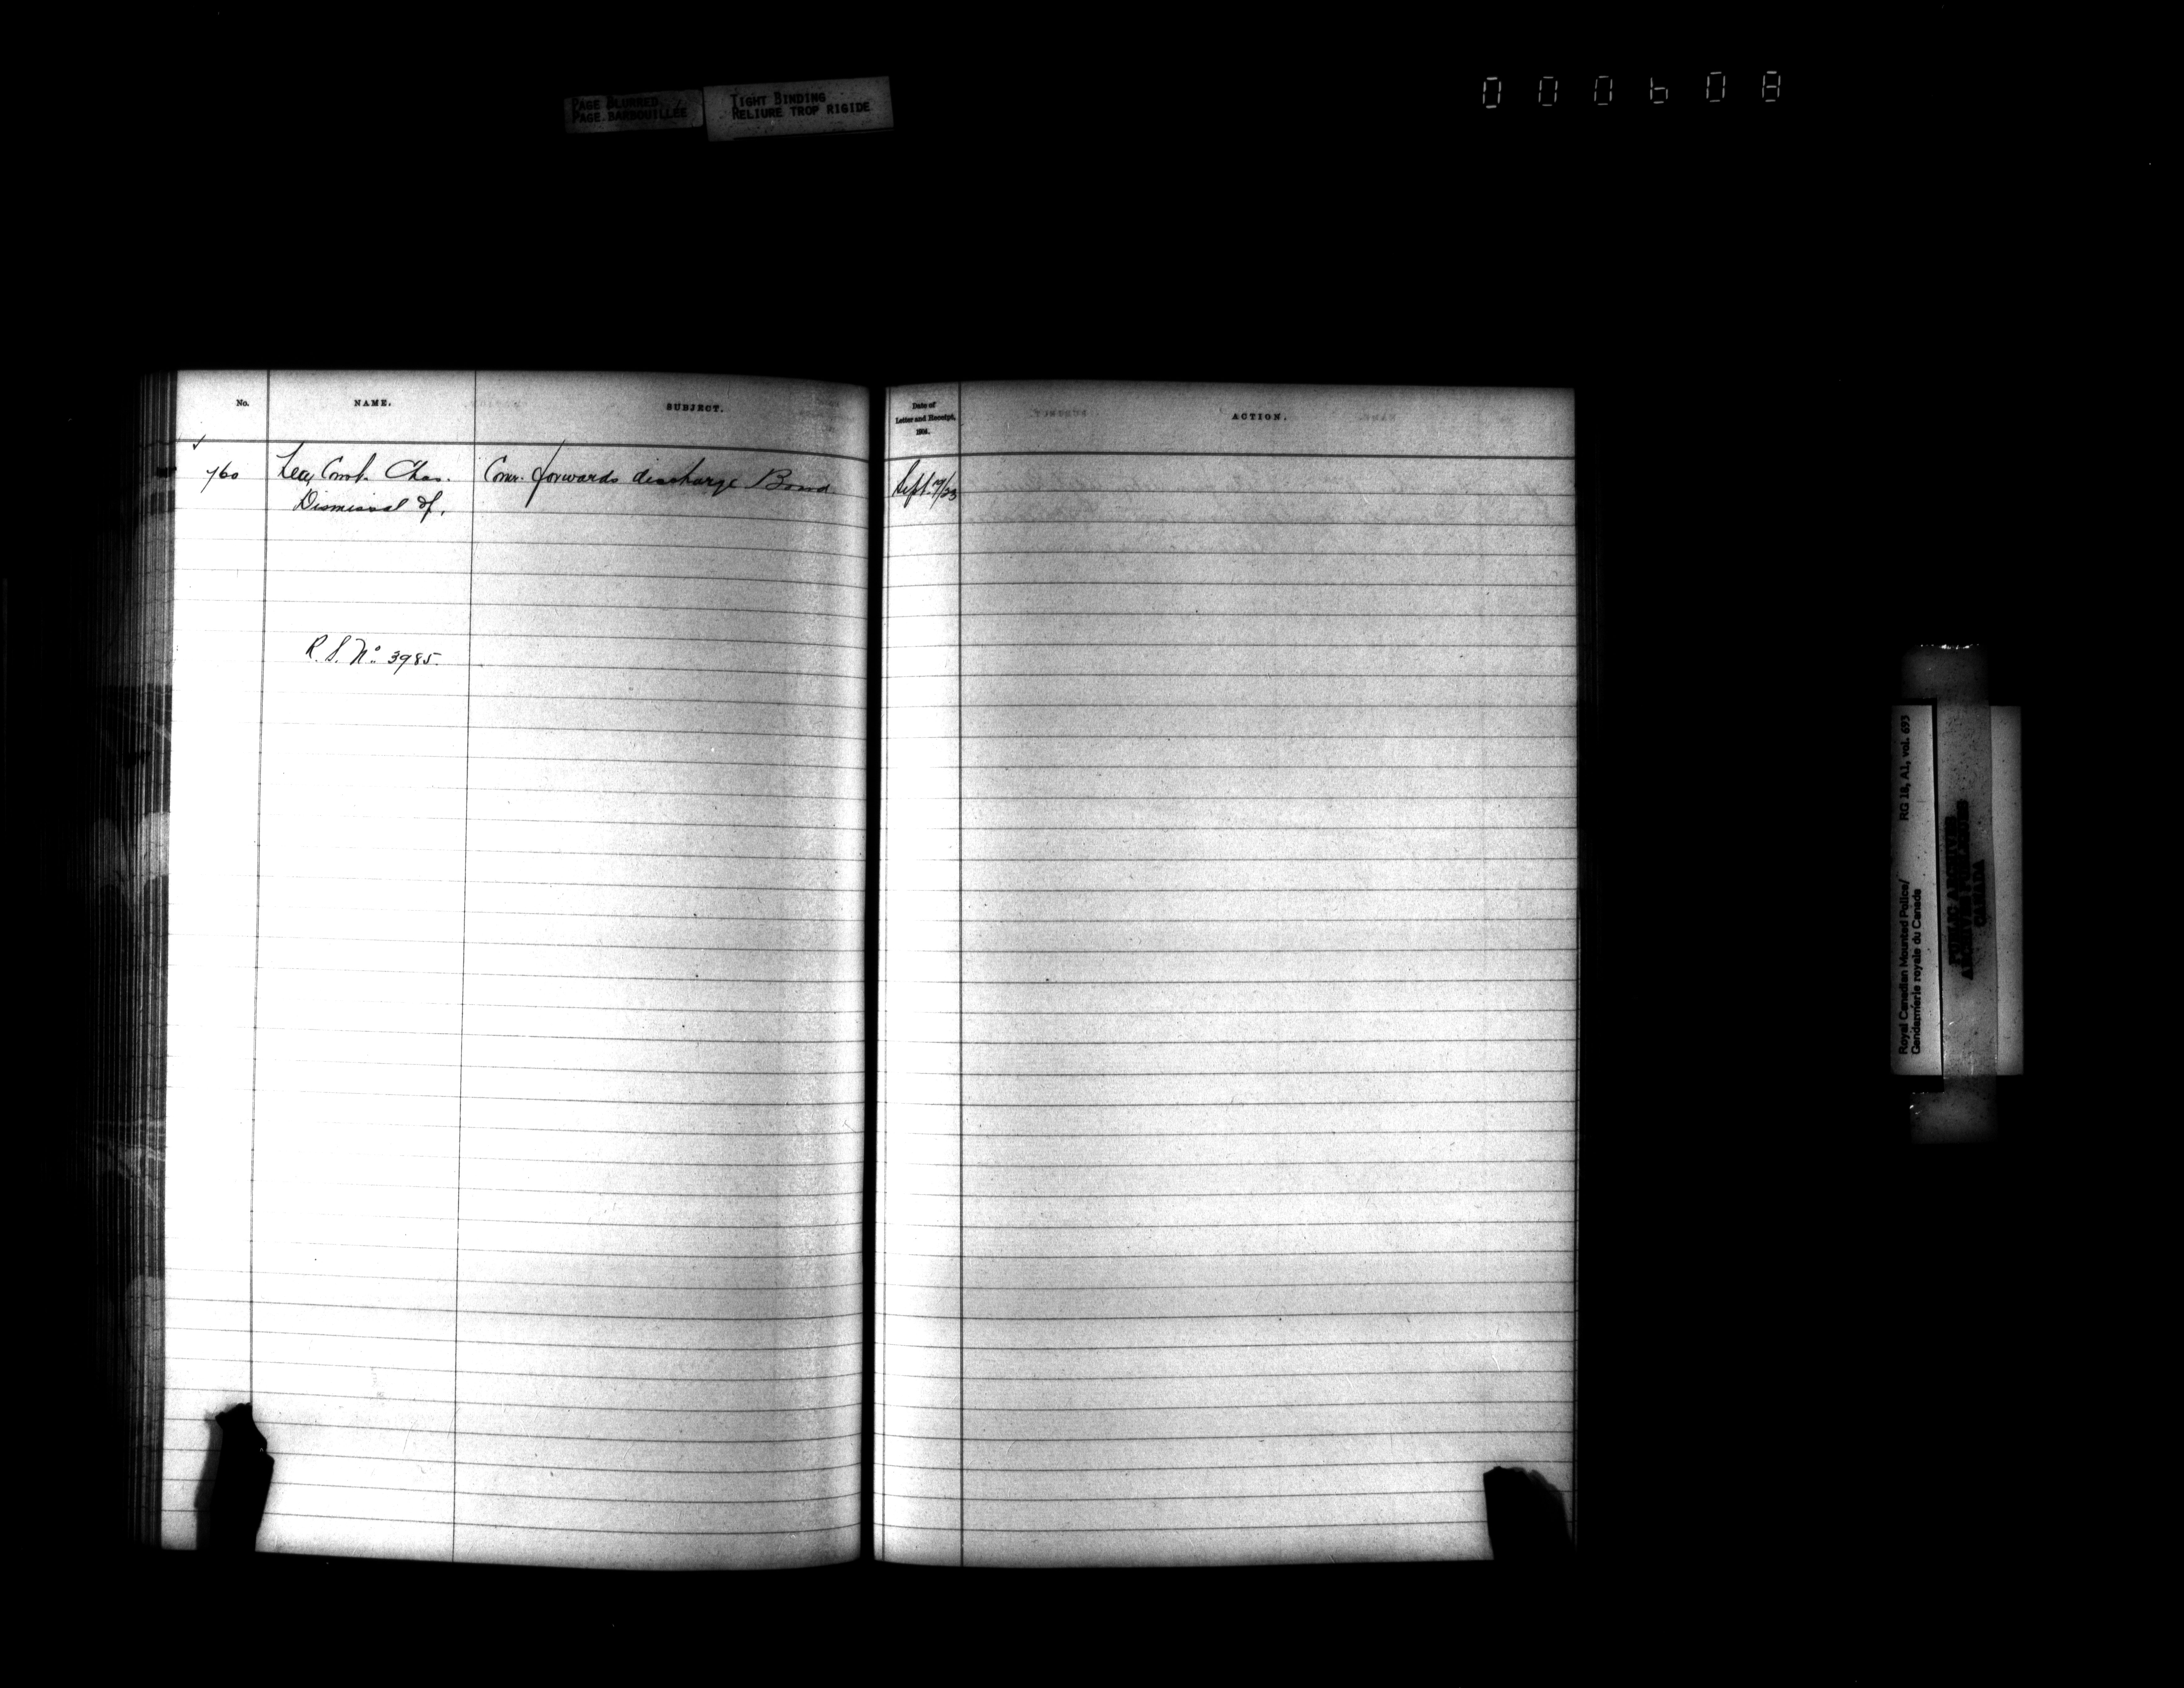 PAGE BLURRED
PAGE BARBOUILLÉE
TIGHT BINDING
RELIURE TROP RIGIDE
000608
No.
NAME.
SUBJECT.
Date of
Letter and Receipt,
1904.
ACTION.
760
Lea, Const. Chas.
Comr. forwards discharge Board
Sept. 19/23
Dismissal of.
R.S. No. 3985.
Royal Canadian Mounted Police/ RG 18, A1, vol. 693
Gendarmerie royale du Canada
PUBLIC ARCHIVES
ARCHIVES PUBLIQUES
CANADA